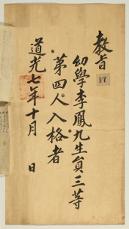 教旨
幼學李鳳九生員三等
第四人入格者
道光七年十月　日